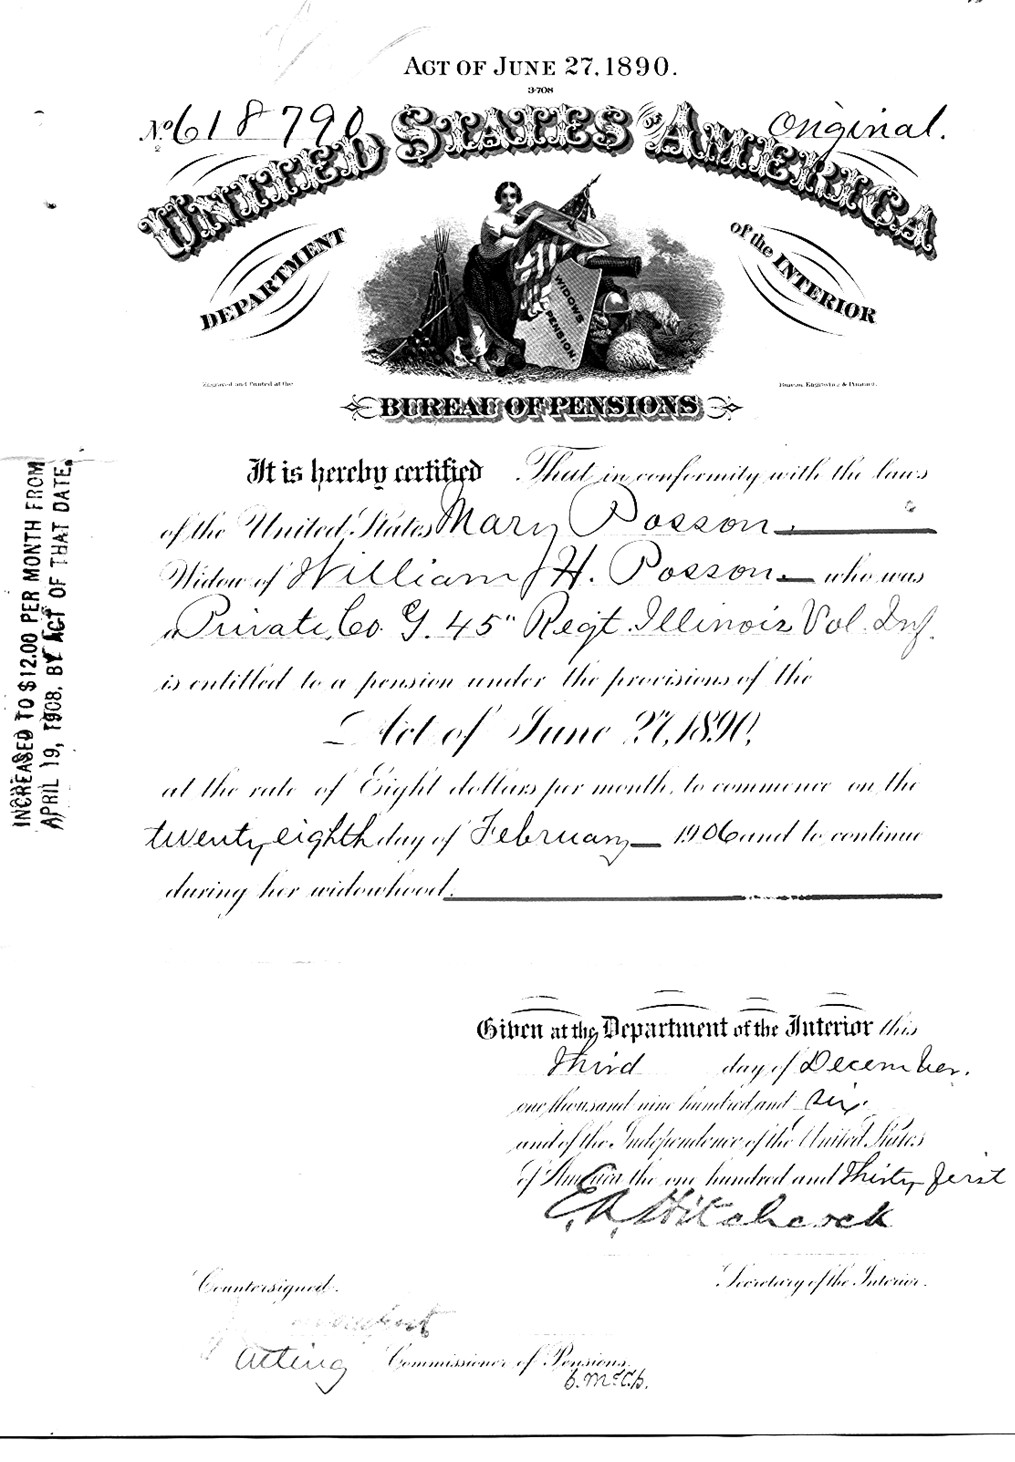 ACT OF JUNE 27, 1890.
3-708
No 618790
Original.
UNITED STATES OF AMERICA
DEPARTMENT of the INTERIOR
WIDOWS PENSION
Engraved and Printed at the
Bureau, Engraving & Printing.
BUREAU OF PENSIONS
It is hereby certified That in conformity with the laws
of the United States Mary Posson,
Widow of William H. Posson. who was
a Private, Co. G. 45" Regt Illinois Vol. Inf.
is entitled to a pension under the provisions of the
Act of June 27, 1890,
at the rate of Eight dollars per month, to commence on the
twenty eighth day of February 1906 and to continue
during her widowhood.
INCREASED TO $12.00 PER MONTH FROM
APRIL 19, 1908. BY ACT OF THAT DATE.
Given at the Department of the Interior this
third day of December.
one thousand nine hundred and six.
and of the Independence of the United States
of America the one hundred and thirty first
E. A. Hitchcock
Secretary of the Interior.
Countersigned.
Acting Commissioner of Pensions.